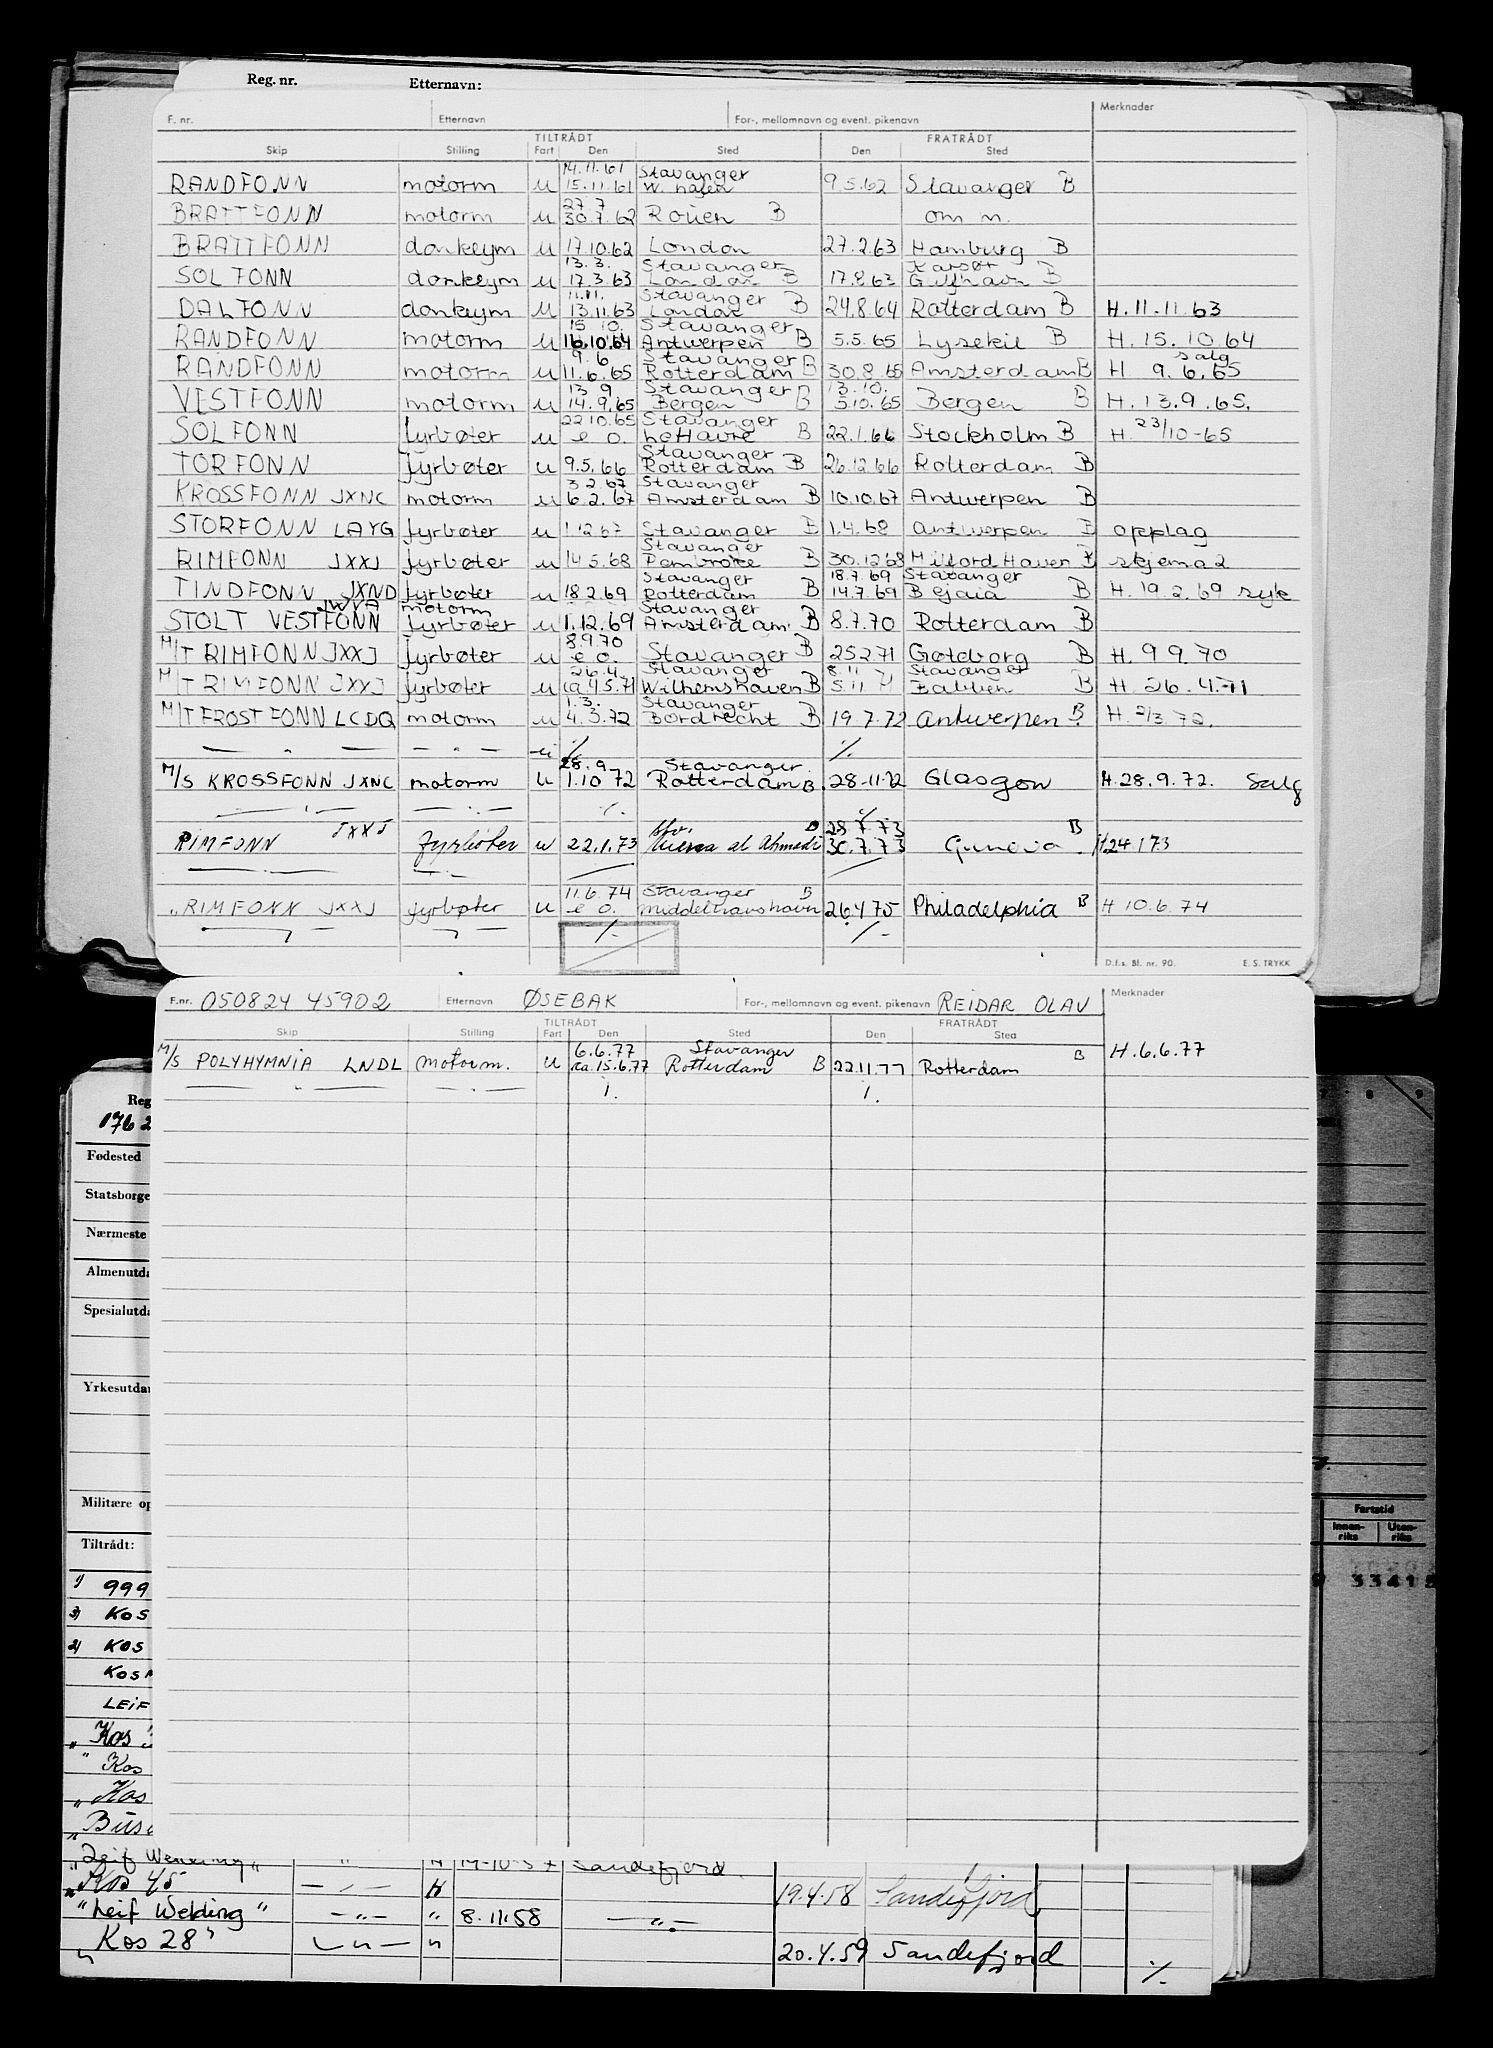 Reg. nr. Etternavn:
F. nr. Etternavn For-, mellomnavn og event. pikenavn Merknader
TILTRÅDT FRATRÅDT
Skip Stilling Fart Den Sted Den Sted
14.11.61 Stavanger
RANDFONN motorm u 15.11.61 W. hafen 9.5.62 Stavanger B
27.7
BRATTFONN motorm u 30.7.62 Rouen B om m.
BRATTFONN donkeym u 17.10.62 London 27.2.63 Hamburg B
13.3. Stavanger Korsør
SOLFONN donkeym u 17.3.63 London B 17.8.63 Gulfhavn B
11.11. Stavanger
DALFONN donkeym u 13.11.63 London B 24.8.64 Rotterdam B H. 11.11.63
15 10. Stavanger
RANDFONN motorm u 16.10.64 Antwerpen B 5.5.65 Lysekil B H. 15.10.64
9.6 Stavanger salg
RANDFONN motorm u 11.6.65 Rotterdam B 30.8.65 Amsterdam B H 9.6.65
13 9 Stavanger 13.10.
VESTFONN motorm u 14.9.65 Bergen B 5.10.65 Bergen B H. 13.9.65.
22 10.65 Stavanger
SOLFONN fyrbøter u e o. Le Havre B 22.1.66 Stockholm B H. 23/10-65
Stavanger
TORFONN fyrbøter u 9.5.66 Rotterdam B 26.12.66 Rotterdam B
3 2.67 Stavanger
KROSSFONN JXNC motorm u 6.2.67 Amsterdam B 10.10.67 Antwerpen B
STORFONN LAYG fyrbøter u 1.12 67 Stavanger B 1.4.68 Antwerpen B opplag
Stavanger
RIMFONN JXXJ fyrbøter u 14 5.68 Pembroke B 30.12 68 Milford Haven B skjema 2
Stavanger 18.7.69 Stavanger
TINDFONN JXND fyrbøter u 18 2.69 Rotterdam B 14.7.69 Bejaia B H. 19.2.69 syk
JWVA motorm Stavanger
STOLT VESTFONN fyrbøter u 1.12.69 Amsterdam. B 8.7.70 Rotterdam B
8.9.70
M/T RIMFONN JXXJ fyrbøter u e o. Stavanger B 25 2.71 Gøteborg B H. 9 9.70
26.4. Stavanger 8.11 Stavanger
M/T RIMFONN JXXJ fyrbøter u ca 4.5.71 Wilhemshaven B 5.11 71 B H. 26.4.71
1.3. Stavanger
M/T FROSTFONN LCDQ motorm u 4.3.72 Bordrecht B 19.7.72 Antwerpen B H. 2/3 72.
— " — — " — u ⁒ ⁒
28.9 Stavanger
M/S KROSSFONN JXNC motorm u 1.10 72 Rotterdam B 28-11-72 Glasgow H. 28.9.72. Salg
— " — — " — ⁒ ⁒
JXXJ Stv. B 28.7.73 B
RIMFONN fyrbøter u 22.1.73 Mena al Ahmadi 30.7.73 H 24 1 73
11.6.74 Stavanger B
" RIMFONN JXXJ fyrbøter u e o. Middelhavshavn 26.4 75 Philadelphia B H 10.6.74
⁒ ⁒
D.f.s. Bl. nr. 90. E. S. TRYKK
F.nr. 050824 45902 Etternavn ØSEBAK For-, mellomnavn og event. pikenavn REIDAR OLAV Merknader
TILTRÅDT FRATRÅDT
Skip Stilling Fart Den Sted Den Sted
6.6.77 Stavanger B H. 6.6.77
M/S POLYHYMNIA LNDL motorm. u ca. 15.6.77 Rotterdam B 22.11.77 Rotterdam
— " — — " —
Reg
176 2
Fødested
Statsborge
Nærmeste
Almenutda
Spesialutda
Yrkesutdan
Militære op
Tiltrådt:
Fartstid
Innen-riks Uten-riks
1) 999
33415
3) KOS
2) KOS
KOS
LEIF
" Kos
" Kos
" Kos
" Busi
" Leif Welding " " H 14-10-57 Sandefjord
" Kos 45 — " — H 19.4.58 Sandefjord
" Leif Welding " — " — " 8.11.58 — " —
" Kos 28 " — " — " 20.4.59 Sandefjord ⁒